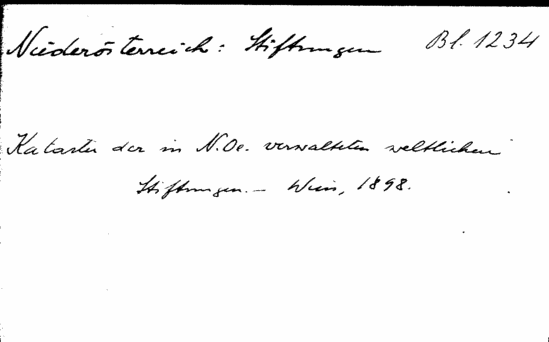 Niederösterreich: Stiftungen Bl. 1234
Kataster der in N.Oe. verwalteten weltlichen
Stiftungen. – Wien, 1898.